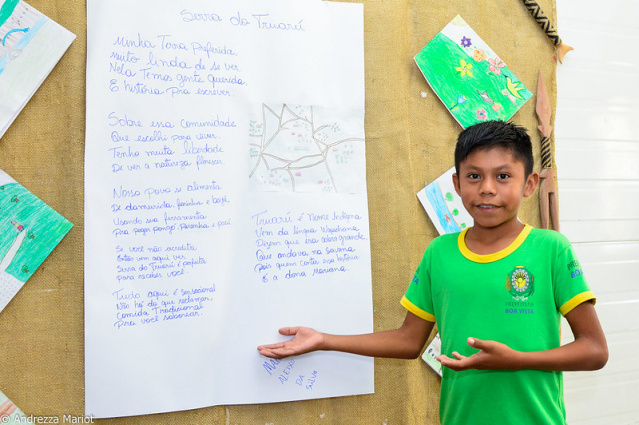 Serra do Truarú
Minha Terra Preferida
Muito linda de se ver
Nela Temos gente querida
E história pra escrever
Sobre essa Comunidade
Que escolhi para viver
Tenho muita liberdade
De ver a natureza florescer.
Nosso povo se alimenta
De damurida, farinha e beiju,
Usando sua ferramenta
Pra pegar
Se você não acredita
Então vem aqui ver.
Serra do Truarú é perfeita
Para receber você.
Tudo aqui é sensacional
Não há do que reclamar.
Comida Tradicional
Para você saborear.
Truarú é nome indígena
Vem da língua Wapichana
Dizem que era cobra grande
Que andava na savana
Pois quem conta essa história
É a dona mariana
DA
SILVA
PREFEITURA
BOA VISTA
© Andrezza Mariot